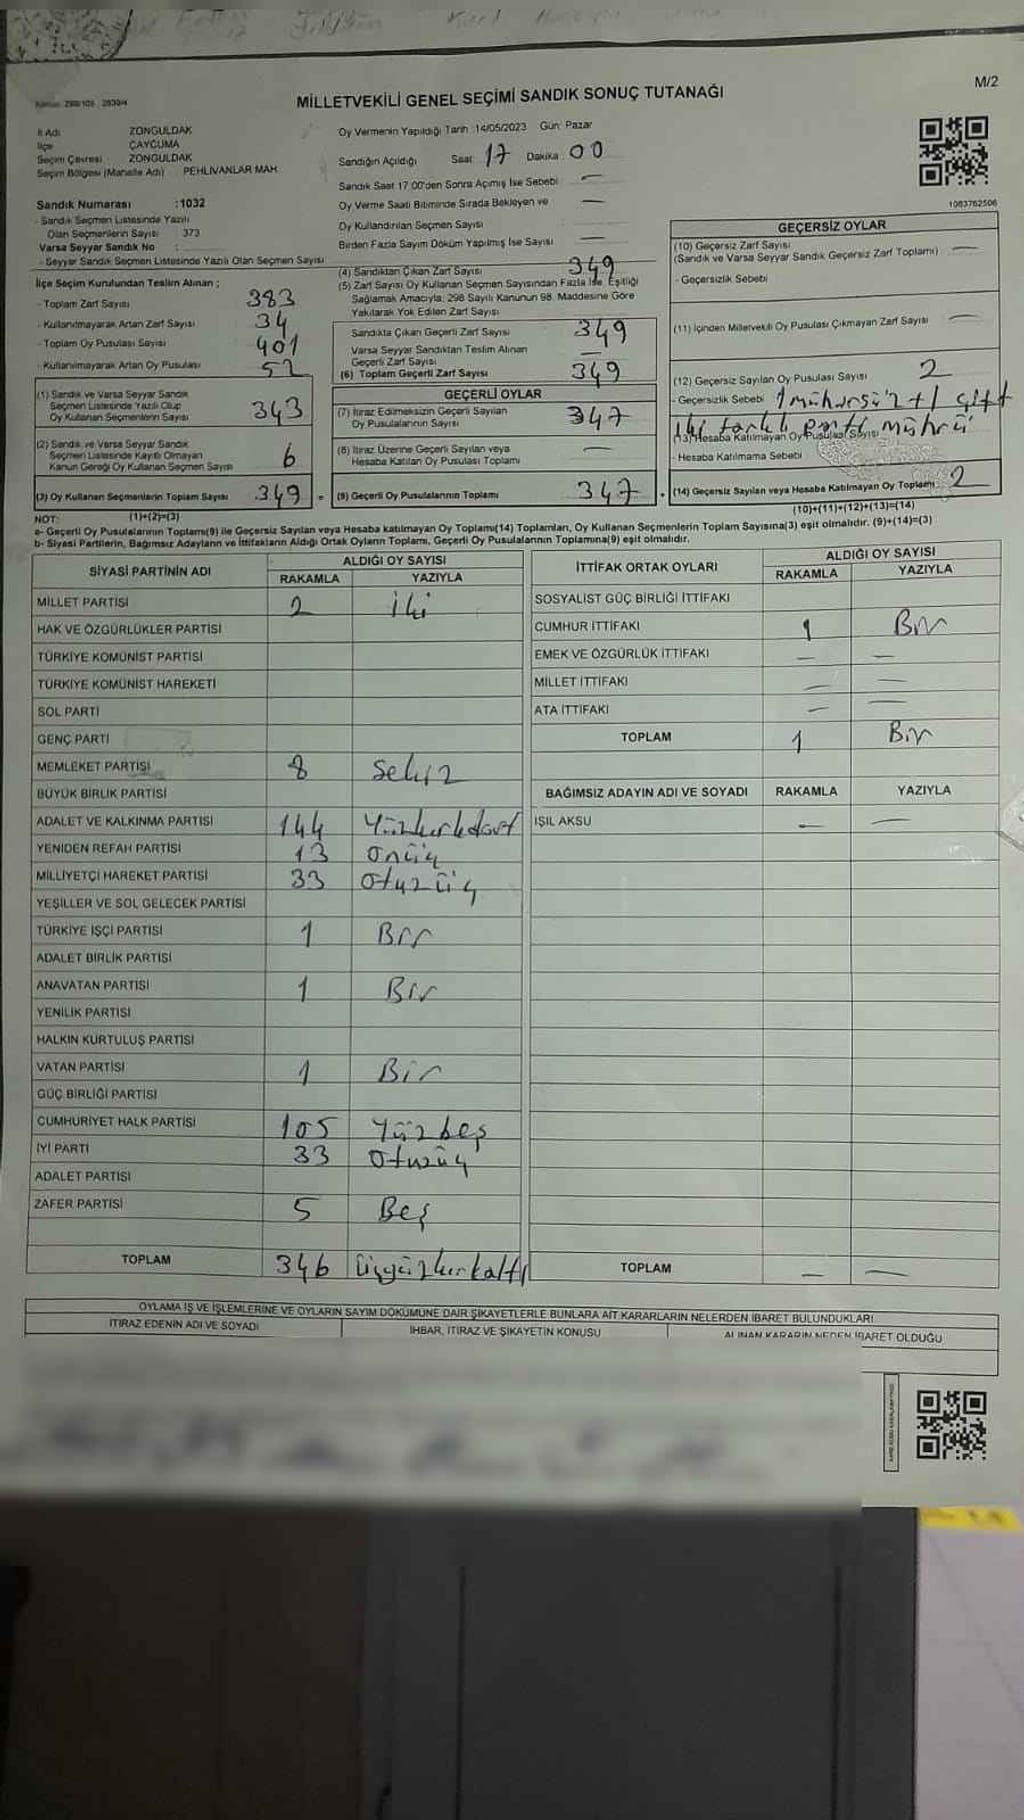 M/2
MİLLETVEKİLİ GENEL SEÇİMİ SANDIK SONUÇ TUTANAĞI
İl Adı ZONGULDAK
İlçe ÇAYCUMA
Seçim Çevresi ZONGULDAK
Seçim Bölgesi (Mahalle Adı) PEHLİVANLAR MAH.
Sandık Numarası :1032
- Sandık Seçmen Listesinde Yazılı
Olan Seçmenlerin Sayısı 373
Varsa Seyyar Sandık No :
- Seyyar Sandık Seçmen Listesinde Yazılı Olan Seçmen Sayısı
Oy Vermenin Yapıldığı Tarih :14/05/2023 Gün: Pazar
Sandığın Açıldığı Saat 17 Dakika 00
Sandık Saat 17:00'den Sonra Açımış İse Sebebi —
Oy Verme Saati Bitiminde Sırada Bekleyen ve —
Oy Kullandırılan Seçmen Sayısı
Birden Fazla Sayım Döküm Yapılmış İse Sayısı —
1083762506
İlçe Seçim Kurulundan Teslim Alınan ;
- Toplam Zarf Sayısı 383
- Kullanılmayarak Artan Zarf Sayısı 34
- Toplam Oy Pusulası Sayısı 401
- Kullanılmayarak Artan Oy Pusulası 52
(1) Sandık ve Varsa Seyyar Sandık
Seçmen Listesinde Yazılı Olup
Oy Kullanan Seçmenlerin Sayısı 343
(2) Sandık ve Varsa Seyyar Sandık
Seçmen Listesinde Kayıtlı Olmayan
Kanun Gereği Oy Kullanan Seçmen Sayısı 6
(3) Oy Kullanan Seçmenlerin Toplam Sayısı 349
(1)+(2)=(3)
(4) Sandıktan Çıkan Zarf Sayısı 349
(5) Zarf Sayısı Oy Kullanan Seçmen Sayısından Fazla İse, Eşitliği
Sağlamak Amacıyla, 298 Sayılı Kanunun 98. Maddesine Göre
Yakılarak Yok Edilen Zarf Sayısı
Sandıkta Çıkan Geçerli Zarf Sayısı 349
Varsa Seyyar Sandıktan Teslim Alınan
Geçerli Zarf Sayısı —
(6) Toplam Geçerli Zarf Sayısı 349
GEÇERLİ OYLAR
(7) İtiraz Edilmeksizin Geçerli Sayılan
Oy Pusulalarının Sayısı 347
(8) İtiraz Üzerine Geçerli Sayılan veya
Hesaba Katılan Oy Pusulası Toplamı —
= (9) Geçerli Oy Pusulalarının Toplamı 347
GEÇERSİZ OYLAR
(10) Geçersiz Zarf Sayısı
(Sandık ve Varsa Seyyar Sandık Geçersiz Zarf Toplamı) —
- Geçersizlik Sebebi
(11) İçinden Milletvekili Oy Pusulası Çıkmayan Zarf Sayısı —
(12) Geçersiz Sayılan Oy Pusulası Sayısı 2
- Geçersizlik Sebebi 1 mühürsüz + 1 çift
iki farklı parti mührü
(13) Hesaba Katılmayan Oy Pusulası Sayısı
- Hesaba Katılmama Sebebi
+ (14) Geçersiz Sayılan veya Hesaba Katılmayan Oy Toplamı 2
(10)+(11)+(12)+(13)=(14)
NOT:
a- Geçerli Oy Pusulalarının Toplamı(9) ile Geçersiz Sayılan veya Hesaba katılmayan Oy Toplamı(14) Toplamları, Oy Kullanan Seçmenlerin Toplam Sayısına(3) eşit olmalıdır. (9)+(14)=(3)
b- Siyasi Partilerin, Bağımsız Adayların ve İttifakların Aldığı Ortak Oyların Toplamı, Geçerli Oy Pusulalarının Toplamına(9) eşit olmalıdır.
SİYASİ PARTİNİN ADI ALDIĞI OY SAYISI
RAKAMLA YAZIYLA
MİLLET PARTİSİ 2 iki
HAK VE ÖZGÜRLÜKLER PARTİSİ
TÜRKİYE KOMÜNİST PARTİSİ
TÜRKİYE KOMÜNİST HAREKETİ
SOL PARTİ
GENÇ PARTİ
MEMLEKET PARTİSİ 8 sekiz
BÜYÜK BİRLİK PARTİSİ
ADALET VE KALKINMA PARTİSİ 144 Yüzkırkdört
YENİDEN REFAH PARTİSİ 13 onüç
MİLLİYETÇİ HAREKET PARTİSİ 33 otuzüç
YEŞİLLER VE SOL GELECEK PARTİSİ
TÜRKİYE İŞÇİ PARTİSİ 1 Bir
ADALET BİRLİK PARTİSİ
ANAVATAN PARTİSİ 1 Bir
YENİLİK PARTİSİ
HALKIN KURTULUŞ PARTİSİ
VATAN PARTİSİ 1 Bir
GÜÇ BİRLİĞİ PARTİSİ
CUMHURİYET HALK PARTİSİ 105 Yüzbeş
İYİ PARTİ 33 otuzüç
ADALET PARTİSİ
ZAFER PARTİSİ 5 Beş
TOPLAM 346 üçyüzkırkaltı
İTTİFAK ORTAK OYLARI ALDIĞI OY SAYISI
RAKAMLA YAZIYLA
SOSYALİST GÜÇ BİRLİĞİ İTTİFAKI
CUMHUR İTTİFAKI 1 Bir
EMEK VE ÖZGÜRLÜK İTTİFAKI — —
MİLLET İTTİFAKI — —
ATA İTTİFAKI — —
TOPLAM 1 Bir
BAĞIMSIZ ADAYIN ADI VE SOYADI RAKAMLA YAZIYLA
IŞIL AKSU — —
TOPLAM — —
OYLAMA İŞ VE İŞLEMLERİNE VE OYLARIN SAYIM DÖKÜMÜNE DAİR ŞİKAYETLERLE BUNLARA AİT KARARLARIN NELERDEN İBARET BULUNDUKLARI
İTİRAZ EDENİN ADI VE SOYADI İHBAR, İTİRAZ VE ŞİKAYETİN KONUSU ALINAN KARARIN NEDEN İBARET OLDUĞU